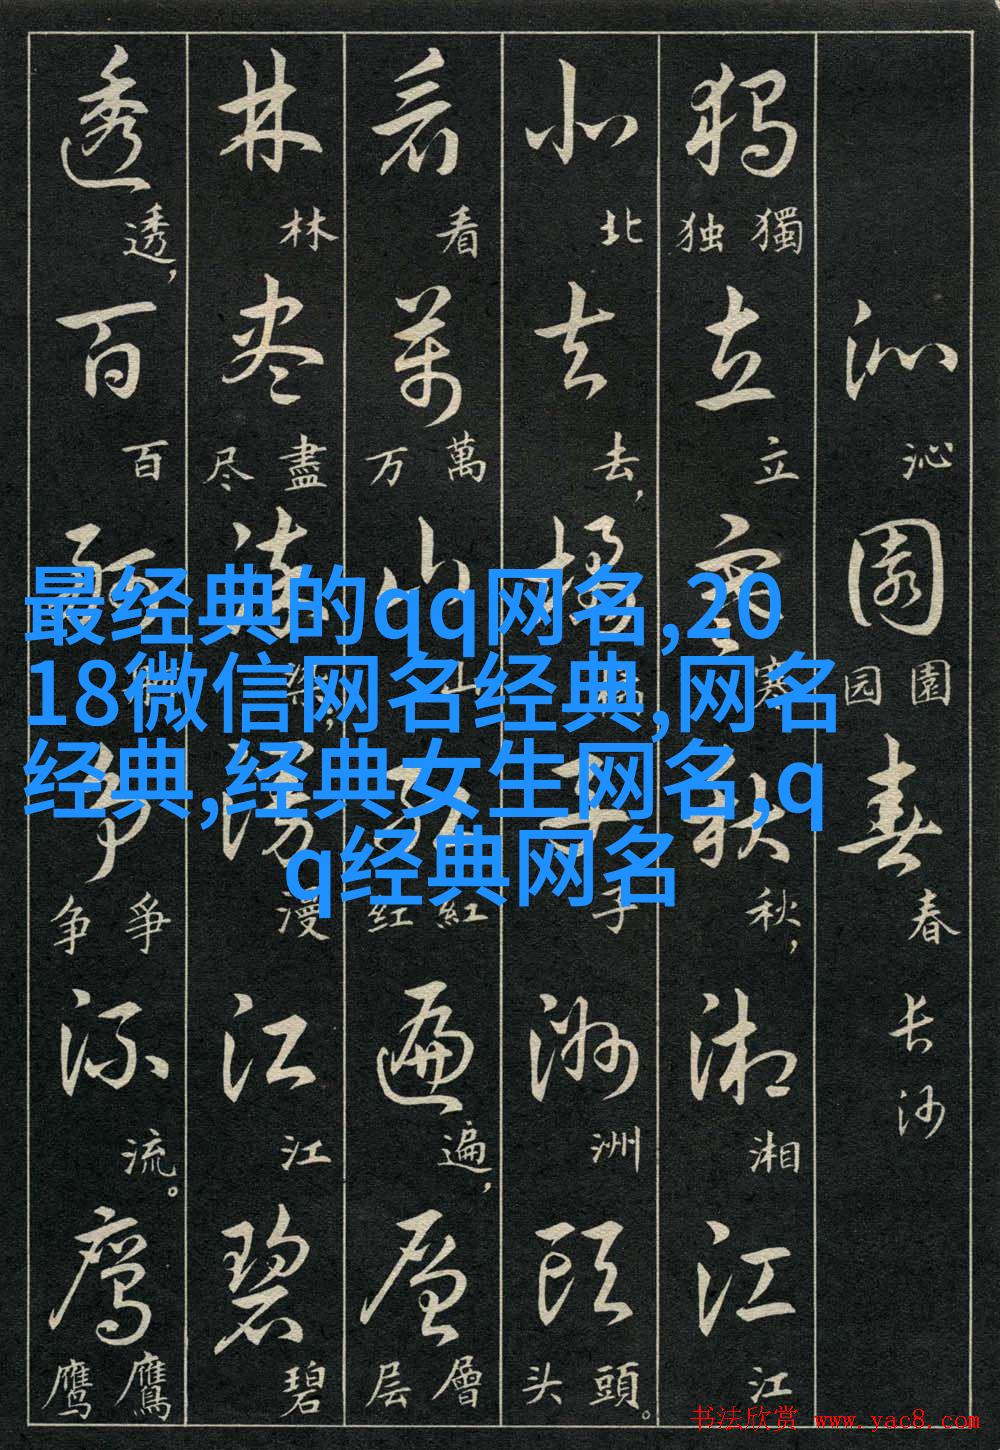 最经典的qq网名,20
18微信网名经典,网名
经典,经典女生网名,q
q经典网名
沁園春
沁 园 園 春 长沙
独立寒秋湘江
独 獨 立 寒 秋， 湘 江
北去橘子洲頭
北 去， 子 洲 头 頭。
看萬山红遍層
看 万 萬 山 红 紅 遍， 层 層
林尽染漫江碧
林 尽 盡 染， 漫 江 碧
透百舸争流鹰
透， 百 争 爭 流。 鹰 鷹
书法欣赏 www.yac8.com